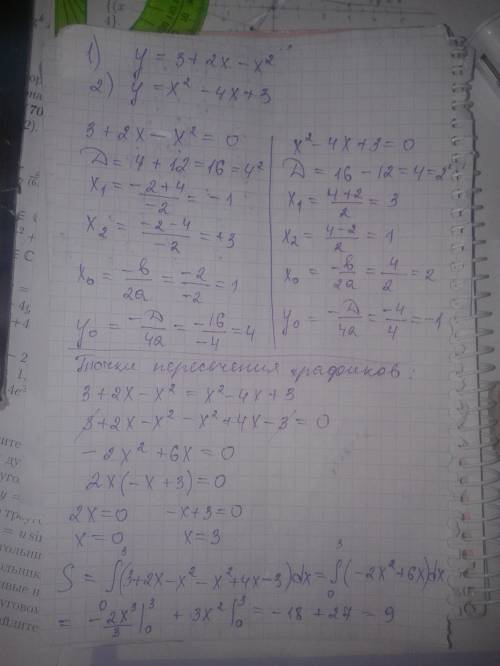 1) y = 3 + 2x - x²
2) y = x² - 4x + 3
3 + 2x - x² = 0
D = 4 + 12 = 16 = 4²
x₁ = (-2+4)/-2 = -1
x₂ = (-2-4)/-2 = +3
x₀ = -b/2a = -2/-2 = 1
y₀ = -D/4a = -16/-4 = 4
x² - 4x + 3 = 0
D = 16 - 12 = 4 = 2²
x₁ = (4+2)/2 = 3
x₂ = (4-2)/2 = 1
x₀ = -b/2a = 4/2 = 2
y₀ = -D/4a = -4/4 = -1
Точки пересечения графиков:
3 + 2x - x² = x² - 4x + 3
3 + 2x - x² - x² + 4x - 3 = 0
-2x² + 6x = 0
2x(-x + 3) = 0
2x = 0 -x + 3 = 0
x = 0 x = 3
S = ∫₀³(3 + 2x - x² - x² + 4x - 3)dx = ∫₀³(-2x² + 6x)dx
= -2x³/3 |₀³ + 3x² |₀³ = -18 + 27 = 9